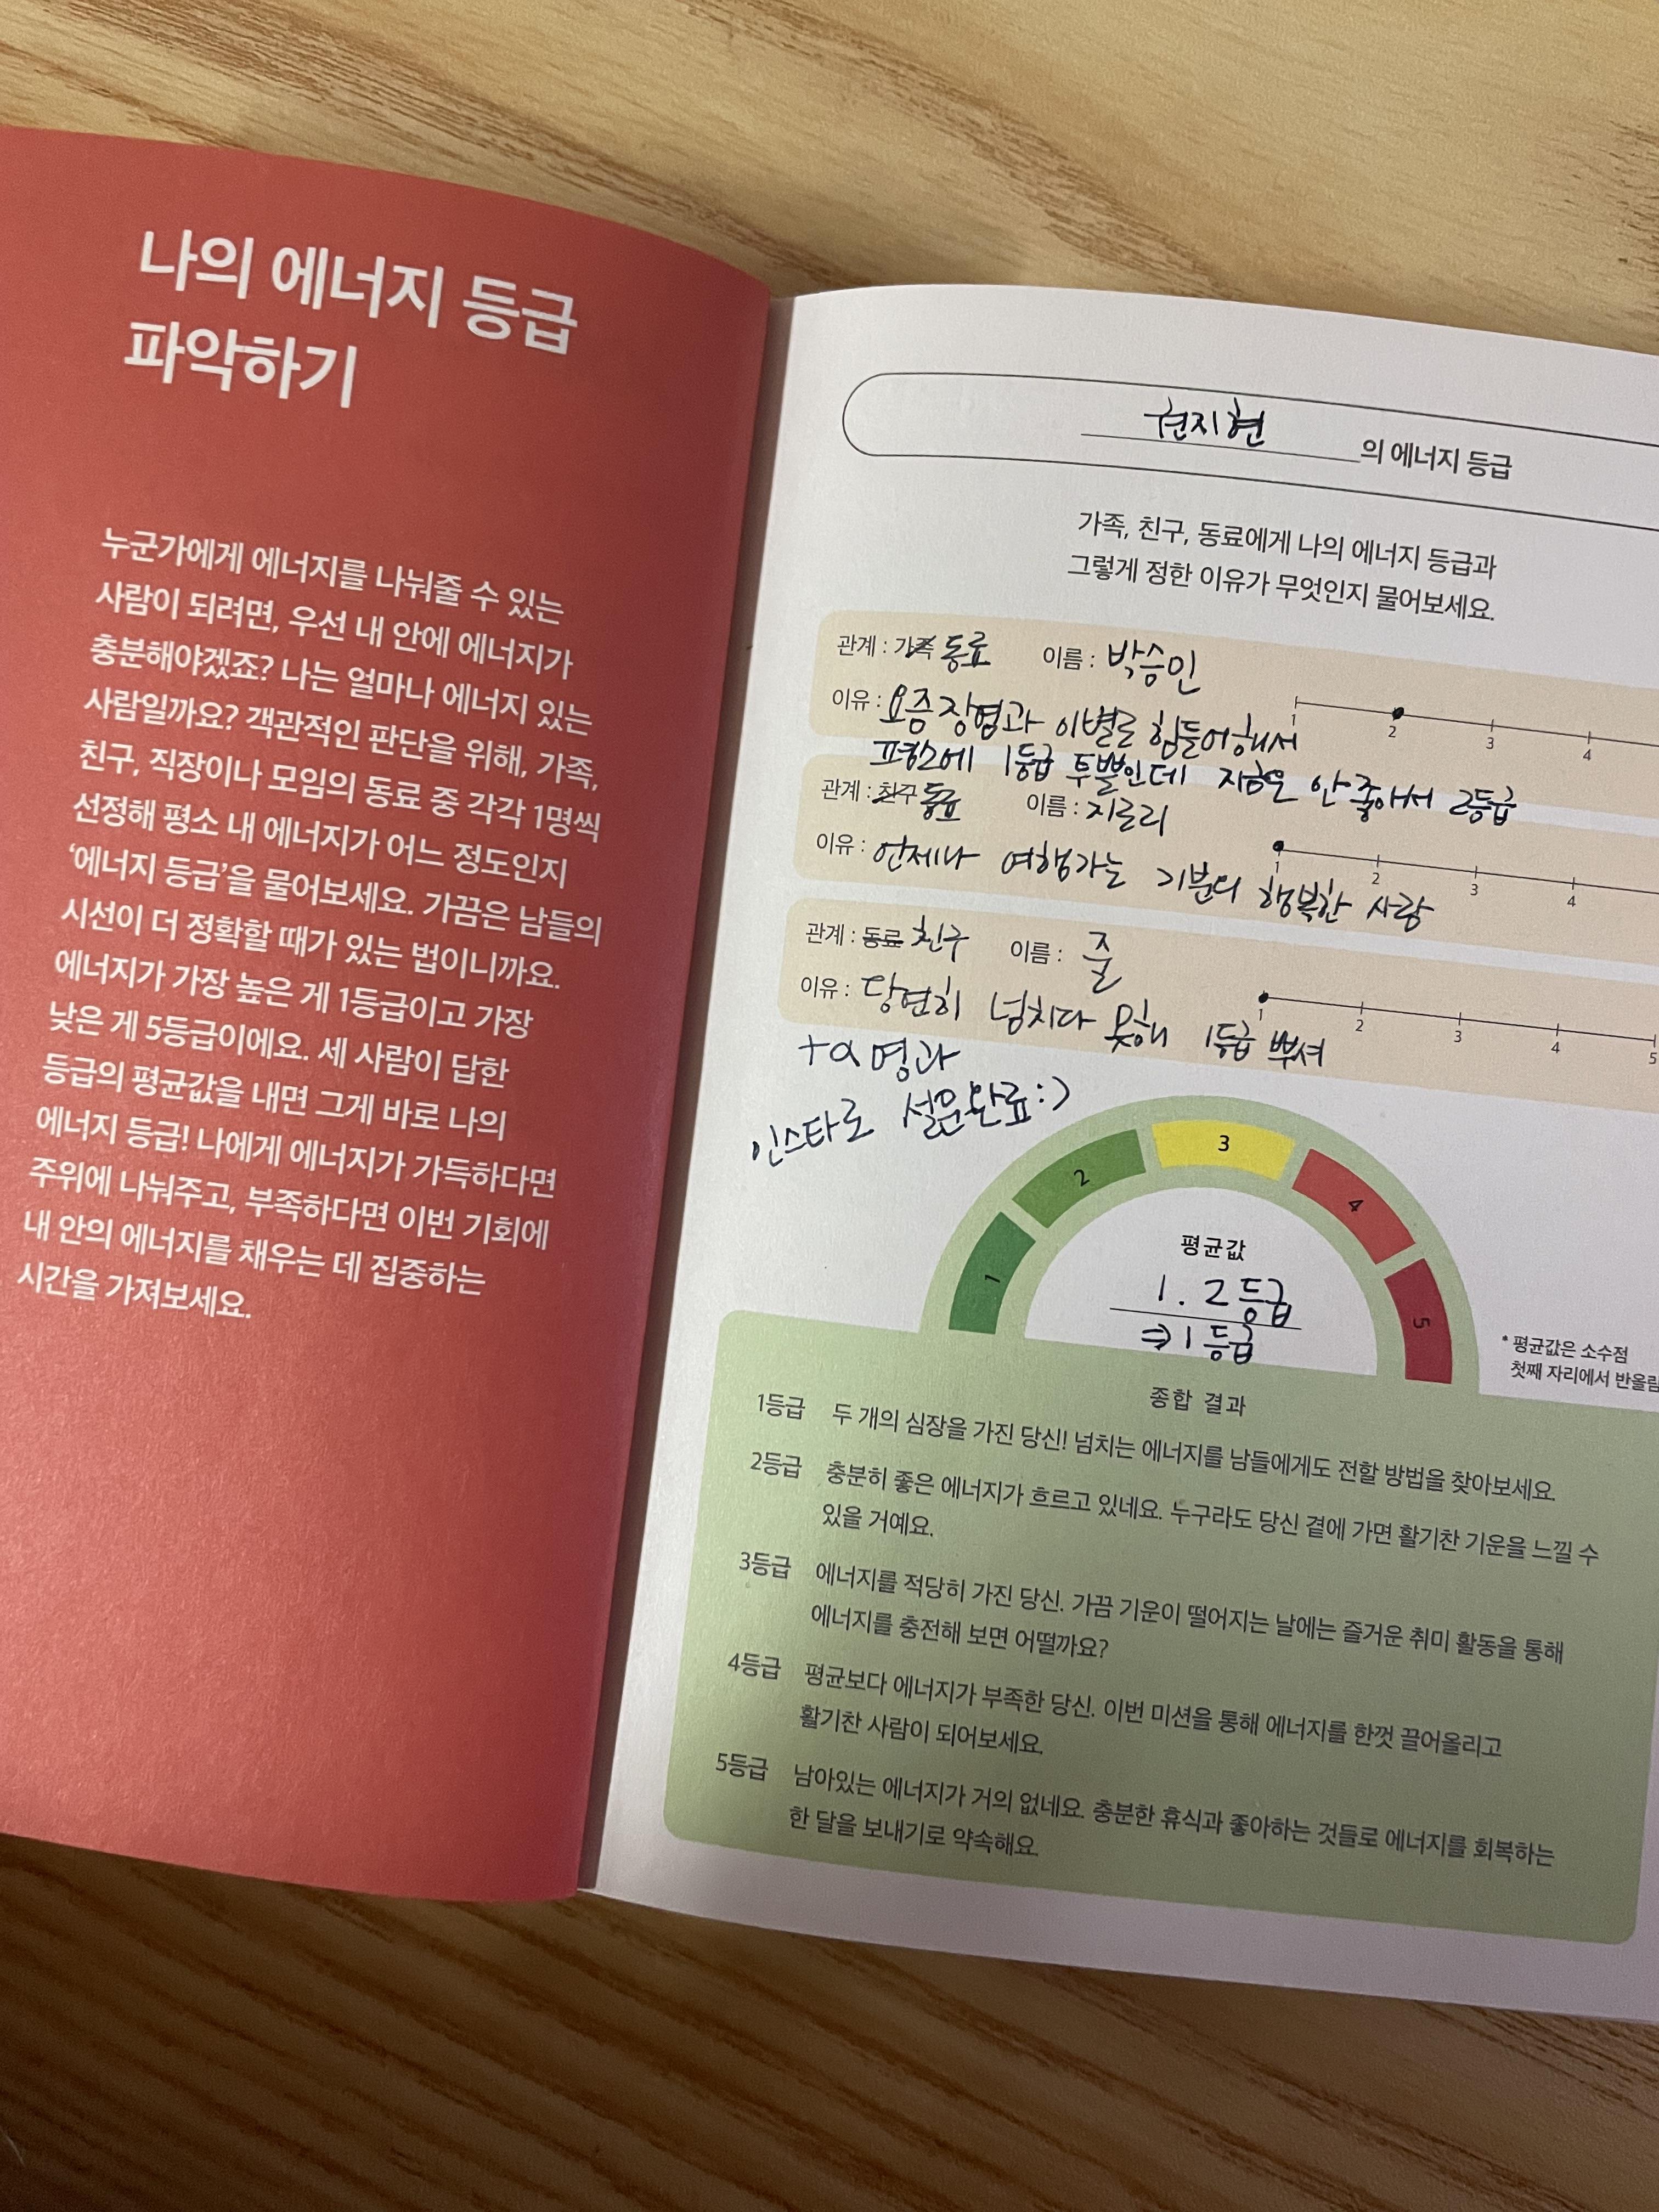 나의 에너지 등급
파악하기
누군가에게 에너지를 나눠줄 수 있는
사람이 되려면, 우선 내 안에 에너지가
충분해야겠죠? 나는 얼마나 에너지 있는
사람일까요? 객관적인 판단을 위해, 가족,
친구, 직장이나 모임의 동료 중 각각 1명씩
선정해 평소 내 에너지가 어느 정도인지
‘에너지 등급’을 물어보세요. 가끔은 남들의
시선이 더 정확할 때가 있는 법이니까요.
에너지가 가장 높은 게 1등급이고 가장
낮은 게 5등급이에요. 세 사람이 답한
등급의 평균값을 내면 그게 바로 나의
에너지 등급! 나에게 에너지가 가득하다면
주위에 나눠주고, 부족하다면 이번 기회에
내 안의 에너지를 채우는 데 집중하는
시간을 가져보세요.
지현 의 에너지 등급
가족, 친구, 동료에게 나의 에너지 등급과
그렇게 정한 이유가 무엇인지 물어보세요.
관계 : 가족 동료 이름 : 박승인
1 2 3 4
이유 : 요즘 장염과 이별로 힘들어해서
평소에 1등급 투뿔인데 지금은 안 좋아서 2등급
관계 : 친구 동료 이름 : 지로리
1 2 3 4
이유 : 언제나 여행가는 기분의 행복한 사람
관계 : 동료 친구 이름 : 줄
1 2 3 4 5
이유 : 당연히 넘치다 못해 1등급 뿌셔
+α 명과
인스타로 설문완료:)
1 2 3 4 5
평균값
1.2등급
⇒1등급
* 평균값은 소수점
첫째 자리에서 반올림
종합 결과
1등급 두 개의 심장을 가진 당신! 넘치는 에너지를 남들에게도 전할 방법을 찾아보세요.
2등급 충분히 좋은 에너지가 흐르고 있네요. 누구라도 당신 곁에 가면 활기찬 기운을 느낄 수
있을 거예요.
3등급 에너지를 적당히 가진 당신. 가끔 기운이 떨어지는 날에는 즐거운 취미 활동을 통해
에너지를 충전해 보면 어떨까요?
4등급 평균보다 에너지가 부족한 당신. 이번 미션을 통해 에너지를 한껏 끌어올리고
활기찬 사람이 되어보세요.
5등급 남아있는 에너지가 거의 없네요. 충분한 휴식과 좋아하는 것들로 에너지를 회복하는
한 달을 보내기로 약속해요.